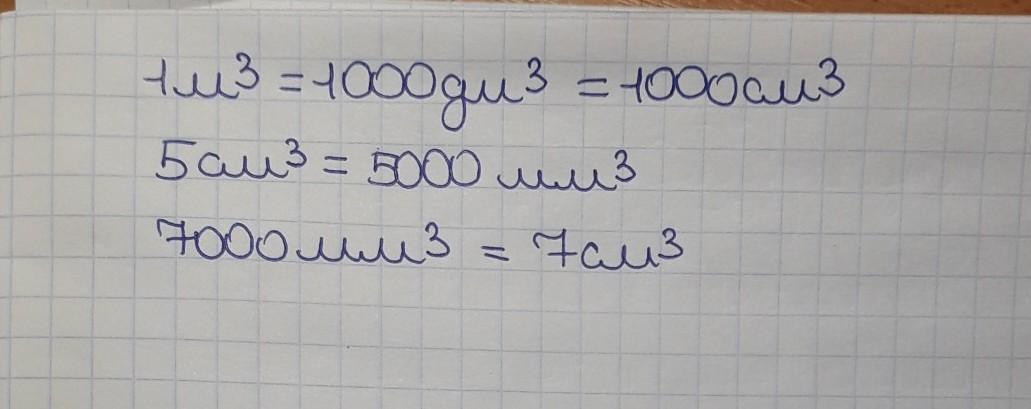 1м³ = 1000дм³ = 1000см³
5см³ = 5000 мм³
7000мм³ = 7см³